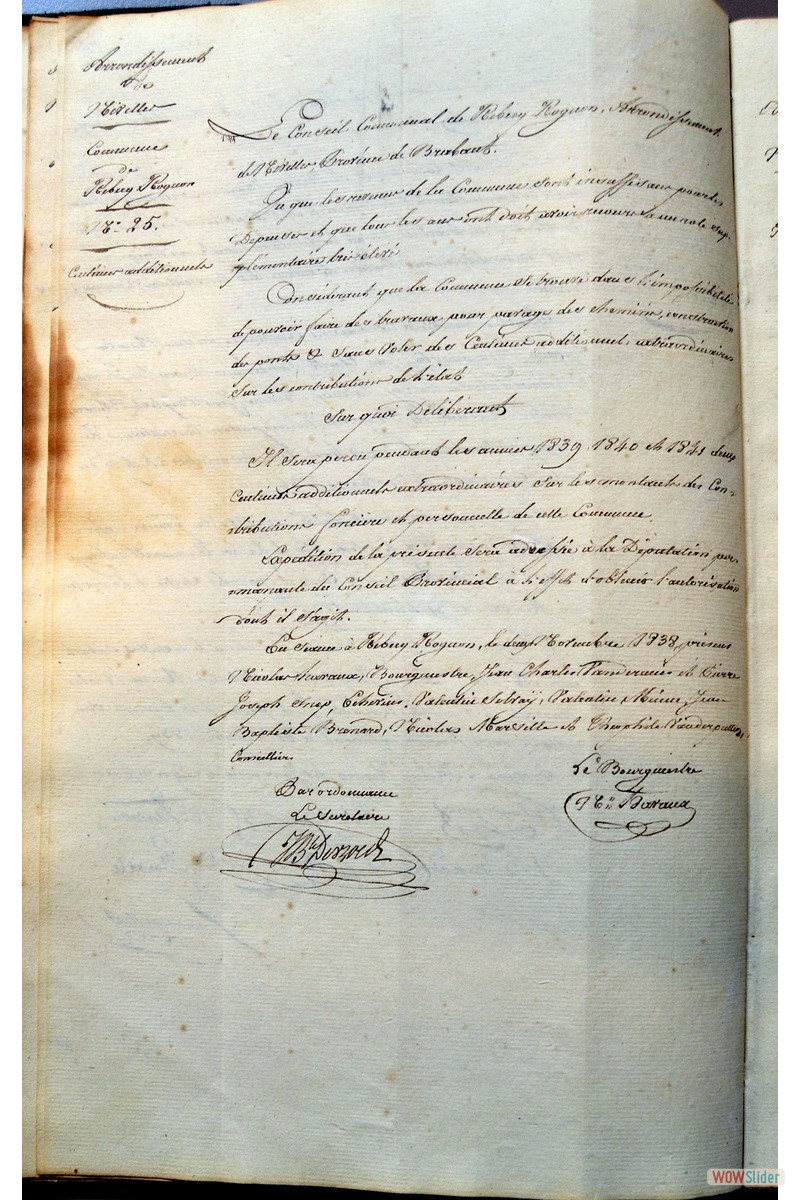 Arrondissement
de
Nivelles
Commune
de
Rebecq Rognon
N° 25.
Centimes additionnels
Le Conseil Communal de Rebecq Rognon, Arrondissement
de Nivelles, Province de Brabant.
Vu que les revenus de la Commune sont insuffisans pour les
Dépenses et que tous les ans on doit avoir recours a un role sup-
plémentaire très élevé
Considérant que la Commune se trouve dans l'impossibilité
de pouvoir faire des travaux pour pavage des chemins, construction
de ponts & sans voter des Centimes additionnels extraordinaires
sur les contributions de l'état
Sur quoi Délibérant
Il sera perçu pendant les années 1839, 1840 et 1841 deux
Centimes additionnels extraordinaires sur les montants des Con-
tributions foncière et personnelle de cette Commune.
Expédition de la présente sera adressée à la Députation per-
manante du Conseil Provincial à l'effet d'obtenir l'autorisation
dont il s'agit.
En séance à Rebecq Rognon, le deux Novembre 1838, présens
Nicolas Havaux, Bourguestre, Jean Charles et Pierre
Joseph Snep, Echevins, Valentin, Valentin, Jean
Baptiste Bronard, Nicolas Marseille et Théophile
Conseillers
Par ordonnance
Le Secrétaire
Le Bourgmestre
Nas Havaux
WOWSlider